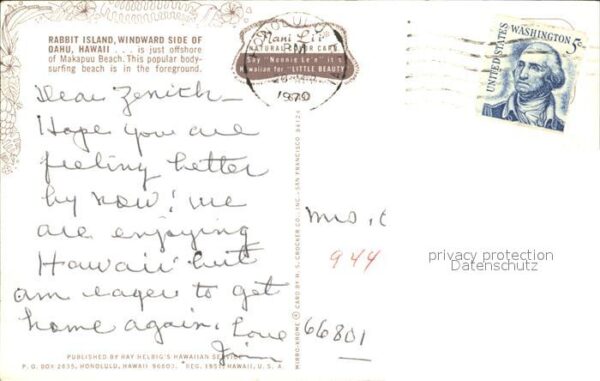 RABBIT ISLAND, WINDWARD SIDE OF
OAHU, HAWAII . . . is just offshore
of Makapuu Beach. This popular body-
surfing beach is in the foreground.
Nani Li'i®
NATURAL COLOR CARD
Say "Nonnie Le'e" it's
Hawaiian for "LITTLE BEAUTY"
PM
1970
UNITED STATES
WASHINGTON 5c
Dear Zenith -
Hope you are
feeling better
by now! We
are enjoying
Hawaii but
am eager to get
home again. Love
Jim
Mrs.
944
66801
privacy protection
Datenschutz
MIRRO-KROME ® CARD BY H. S. CROCKER CO., INC. - SAN FRANCISCO
PUBLISHED BY RAY HELBIG'S HAWAIIAN SERVICE
P. O. BOX 2835, HONOLULU, HAWAII 96803. REG. 1951, HAWAII, U. S. A.